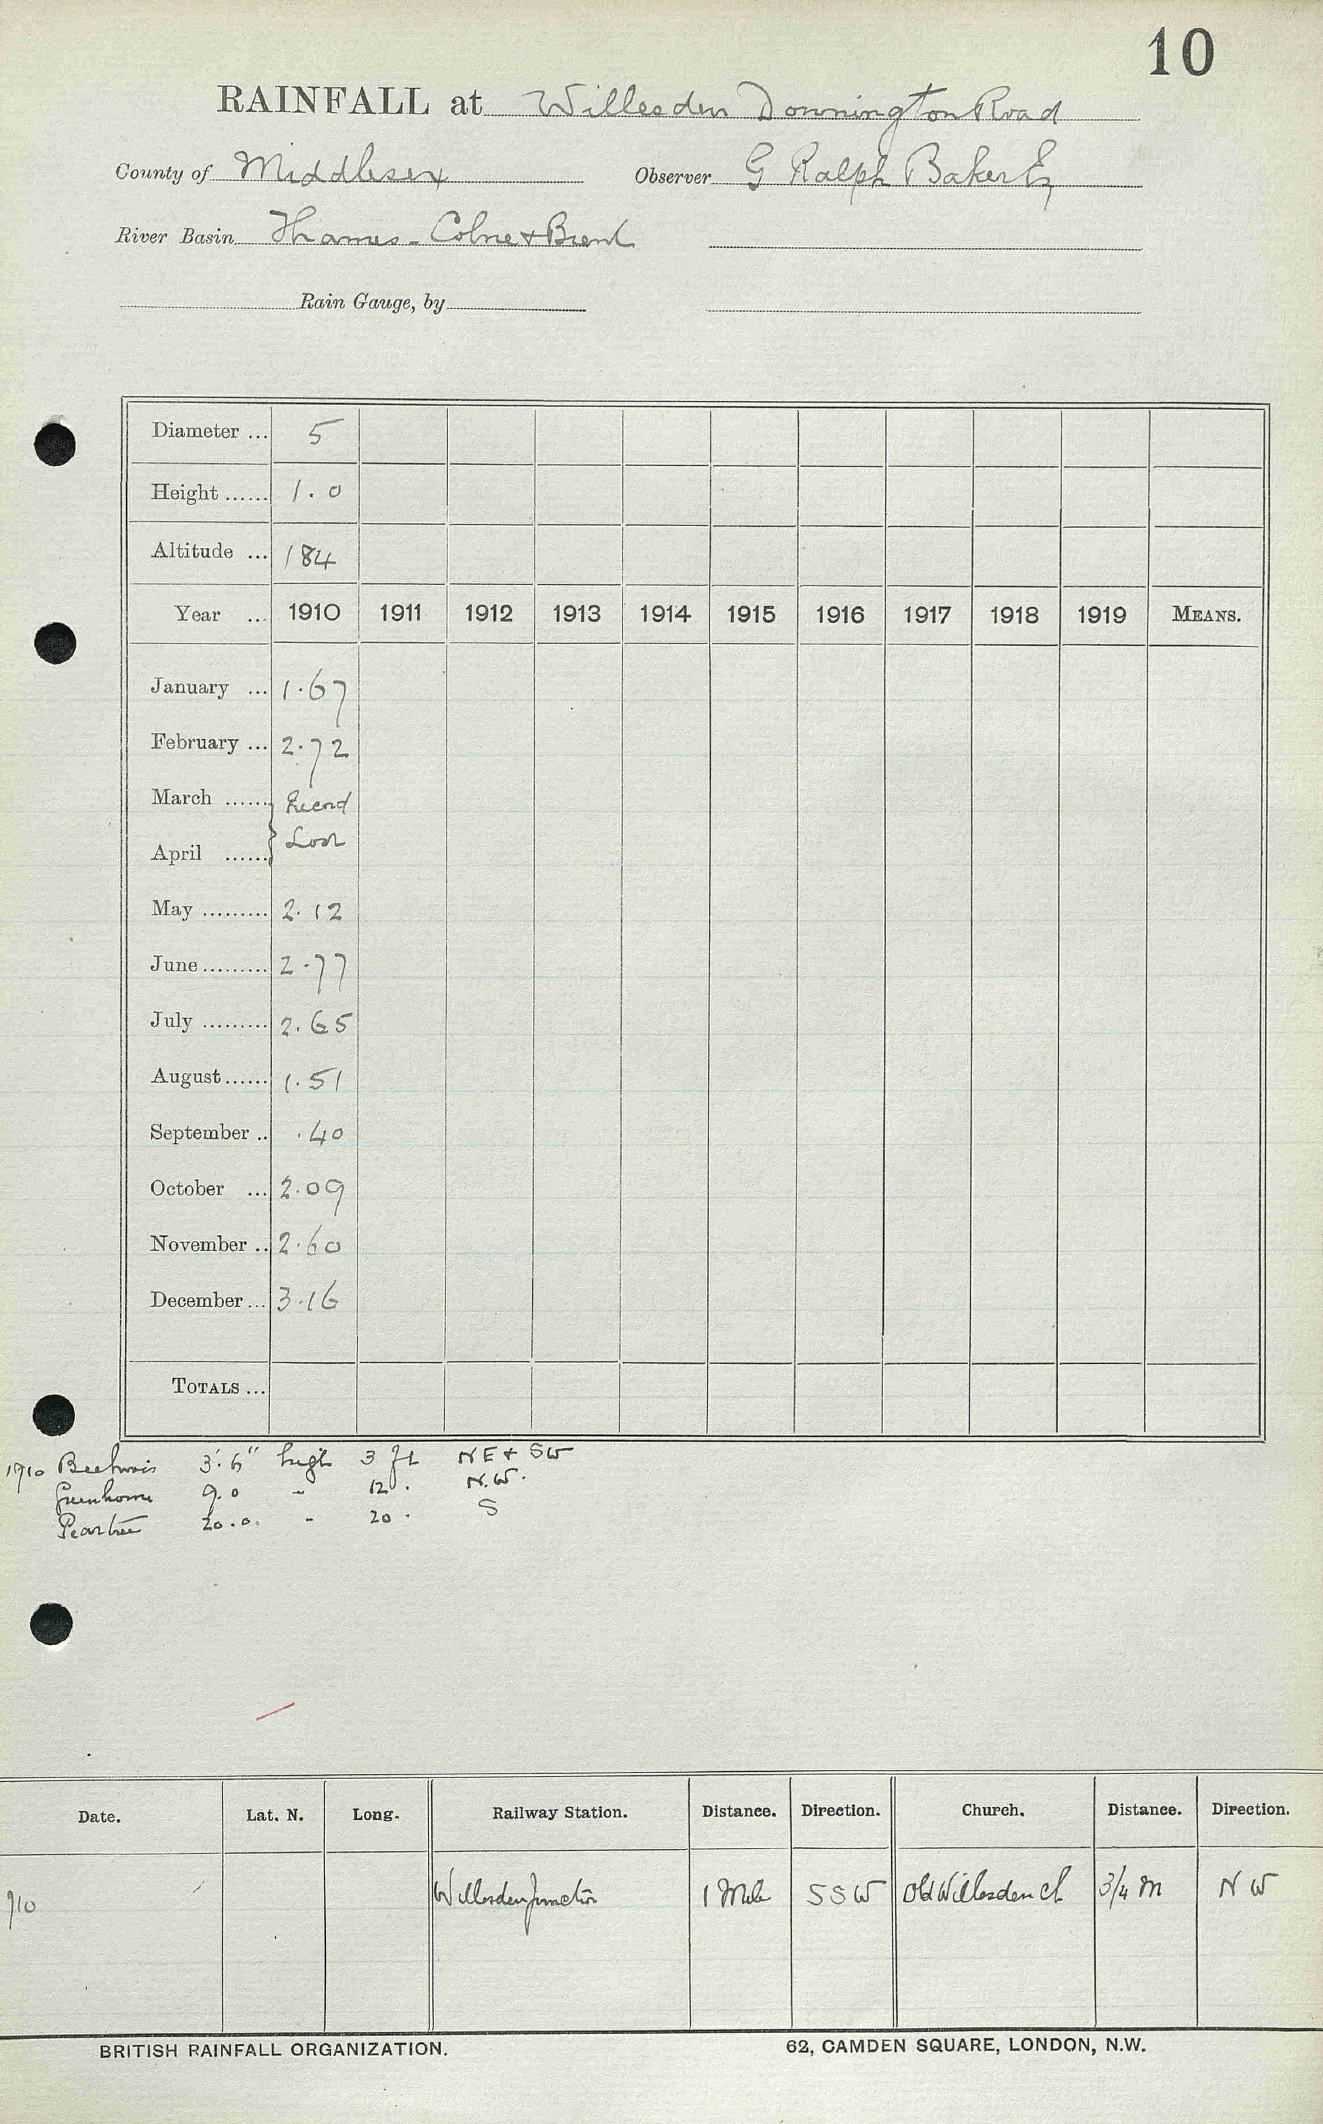 10
RAINFALL at Willesden Donnington Road
County of Middlesex Observer G Ralph Baker Esq
River Basin Thames - Colne & Brent
Rain Gauge, by
Diameter ... 5
Height ...... 1.0
Altitude ... 184
Year ... 1910 1911 1912 1913 1914 1915 1916 1917 1918 1919 MEANS.
January ... 1.67
February ... 2.72
March ...... Record
April ...... Lost
May ......... 2.12
June ......... 2.77
July ......... 2.65
August ...... 1.51
September .. .40
October ... 2.09
November .. 2.60
December ... 3.16
TOTALS ...
1910 3'.6" high 3 ft NE & SW
Greenhouse 9.0 " 12. N.W.
Peartree 20.0. " 20. S
Date. Lat. N. Long. Railway Station. Distance. Direction. Church. Distance. Direction.
910 Willesden Junction 1 Mile SSW Old Willesden Ch 3/4 M NW
BRITISH RAINFALL ORGANIZATION. 62, CAMDEN SQUARE, LONDON, N.W.